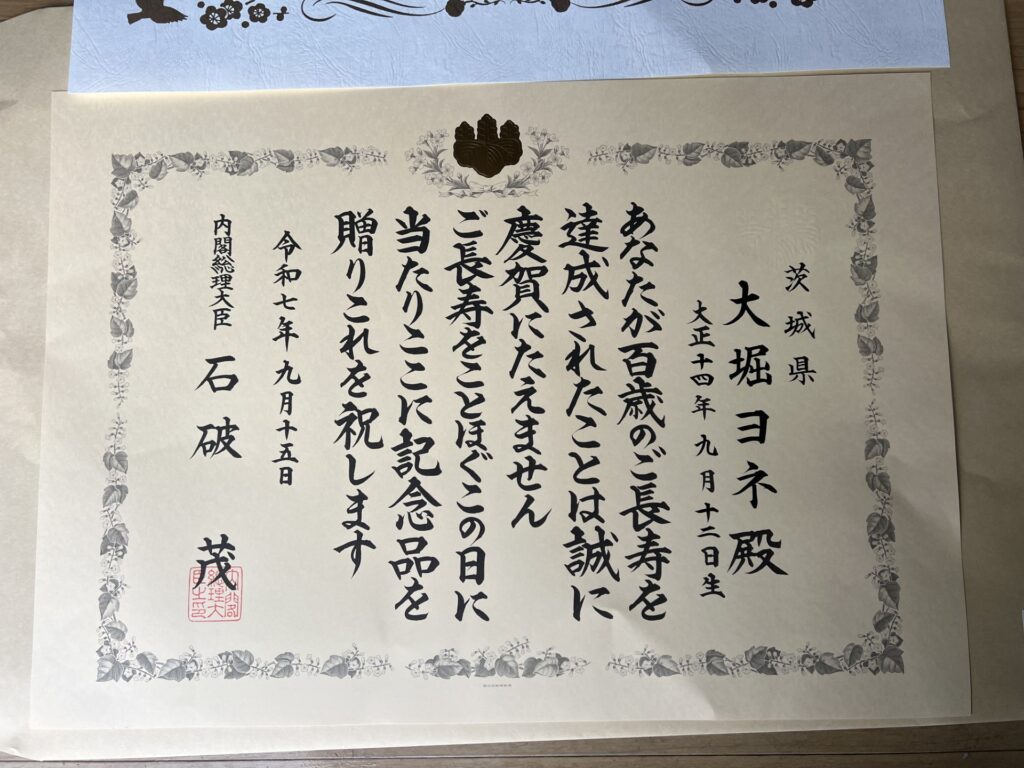 茨城県
大堀ヨネ殿
大正十四年九月十二日生
あなたが百歳のご長寿を
達成されたことは誠に
慶賀にたえません
ご長寿をことほぐこの日に
当たりここに記念品を
贈りこれを祝します
令和七年九月十五日
内閣総理大臣 石破 茂
内閣総理大臣印